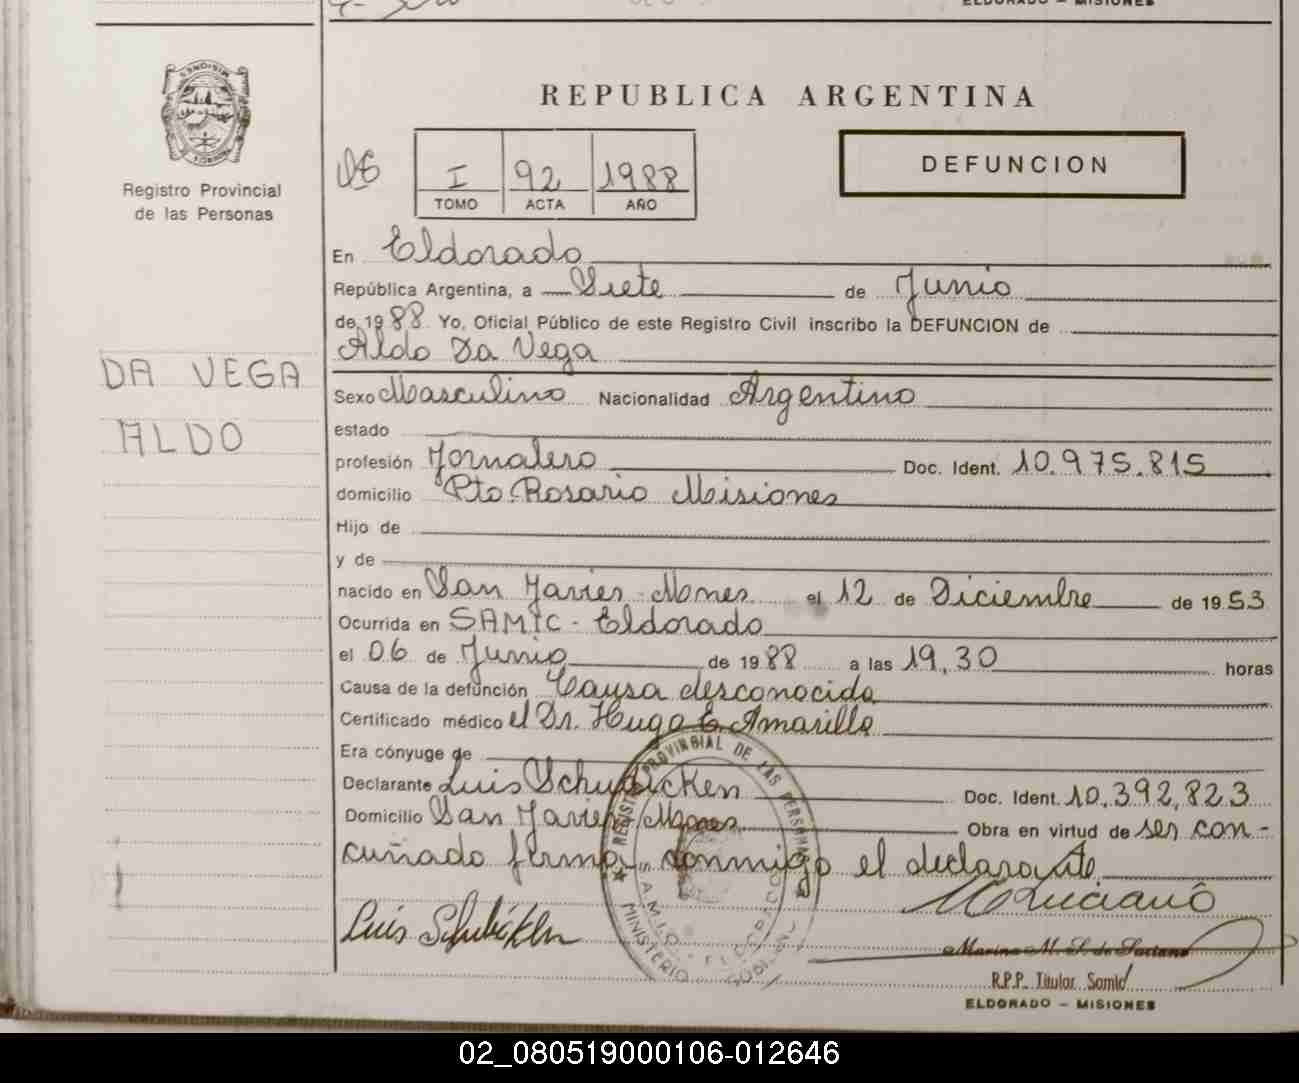 ELDORADO — MISIONES
REPUBLICA ARGENTINA
Registro Provincial
de las Personas
I 92 1988
TOMO ACTA AÑO
DEFUNCION
En Eldorado
República Argentina, a Siete de Junio
de 1988 Yo, Oficial Público de este Registro Civil inscribo la DEFUNCION de
Aldo Da Vega
DA VEGA
ALDO
Sexo Masculino Nacionalidad Argentino
estado
profesión Jornalero Doc. Ident. 10.975.815
domicilio Pto. Rosario Misiones
Hijo de
y de
nacido en San Javier - Mnes el 12 de Diciembre de 1953
Ocurrida en SAMIC - Eldorado
el 06 de Junio de 1988 a las 19,30 horas
Causa de la defunción Causa desconocida
Certificado médico el Dr. Hugo E. Amarilla
Era cónyuge de
Declarante Luis Schubicken Doc. Ident. 10.392.823
Domicilio San Javier, Mnes Obra en virtud de ser con-
cuñado firma conmigo el declarante
Luis
R.P.P. Titular Samic
ELDORADO — MISIONES
REGISTRO PROVINCIAL DE LAS PERSONAS
SAMIC - ELDORADO
MINISTERIO
02_080519000106-012646